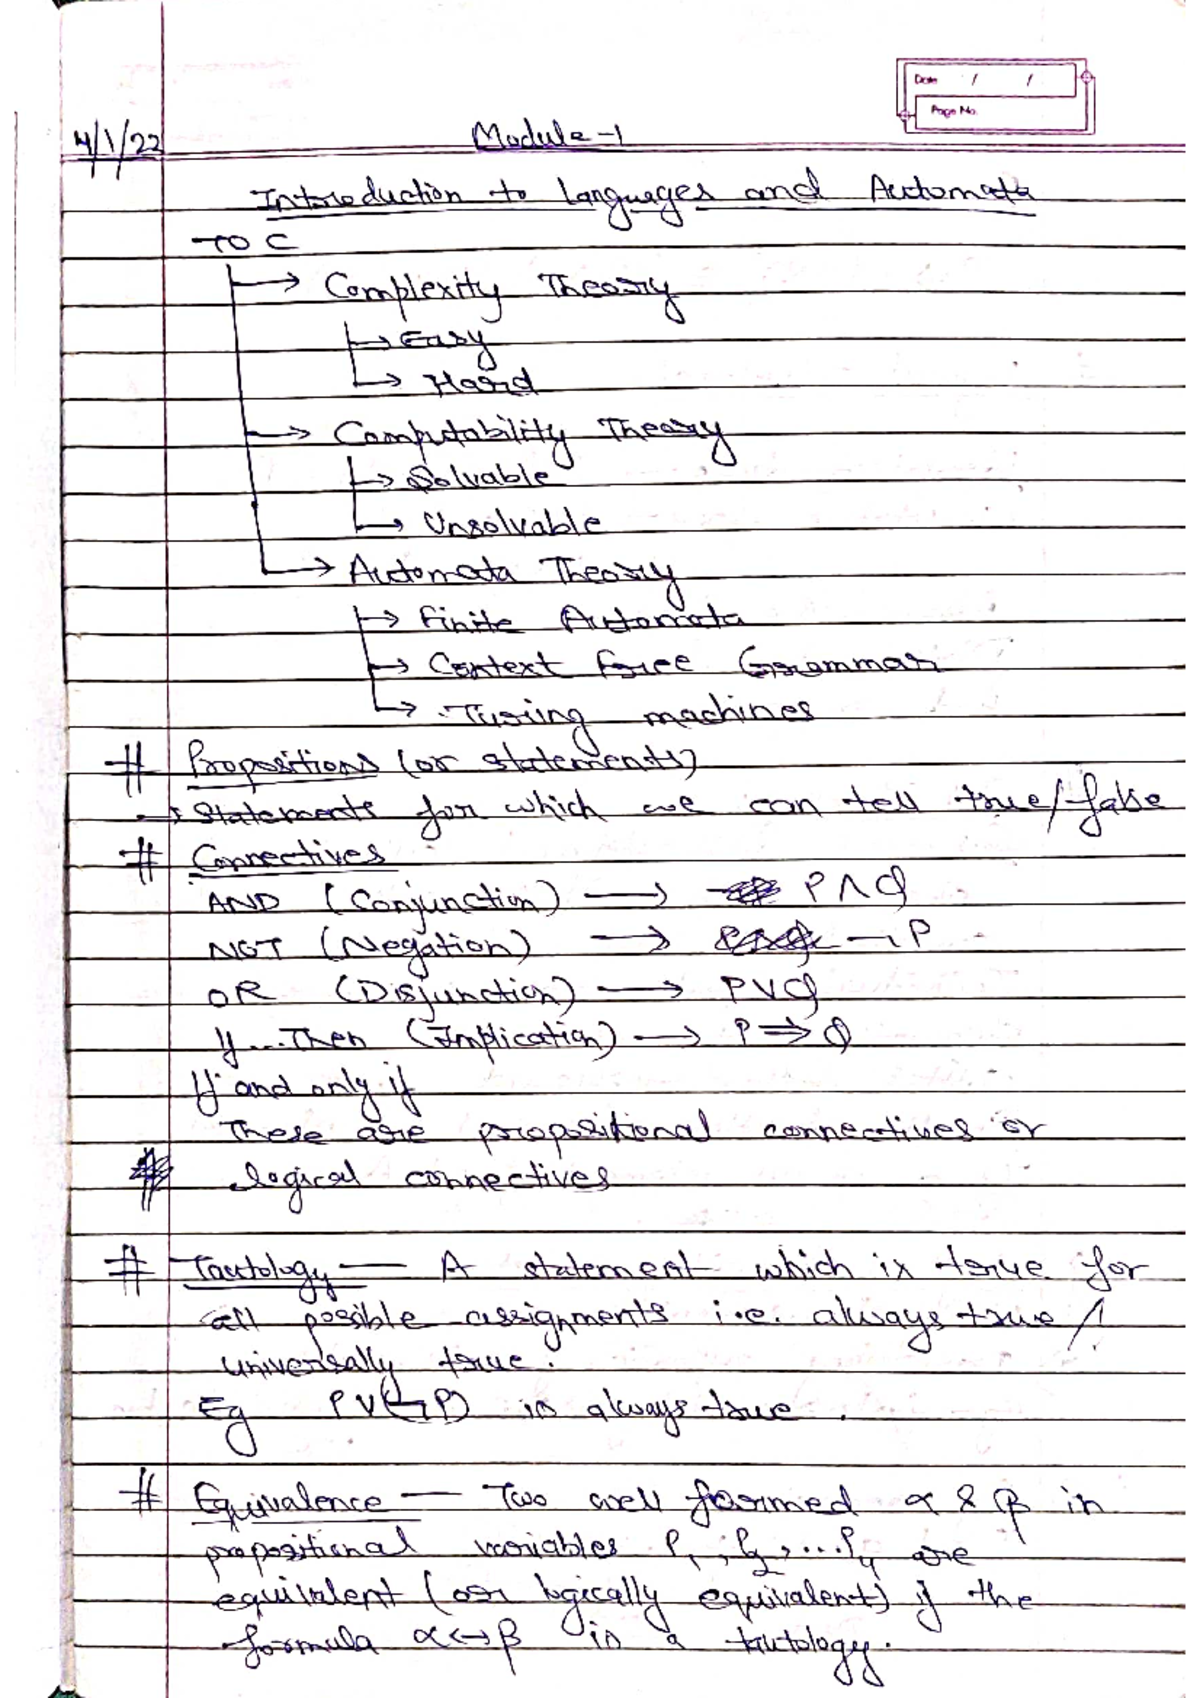 Date / /
Page No.
4/1/22 Module-1
Introduction to Languages and Automata
TOC
→ Complexity Theory
→ Easy
→ Hard
→ Computability Theory
→ Solvable
→ Unsolvable
→ Automata Theory
→ Finite Automata
→ Context free Grammar
→ Turing machines
# Propositions (or statements)
→ Statements for which we can tell true/false
# Connectives
AND (Conjunction) → P∧Q
NOT (Negation) → ¬P
OR (Disjunction) → P∨Q
If...Then (Implication) → P⇒Q
If and only if
These are propositional connectives or
logical connectives
# Tautology — A statement which is true for
all possible assignments i.e. always true /
universally true.
Eg P∨(¬P) is always true.
# Equivalence — Two well formed α & β in
propositional variables P₁, P₂, ...Pn are
equivalent (or logically equivalent) if the
formula α↔β is a tautology.